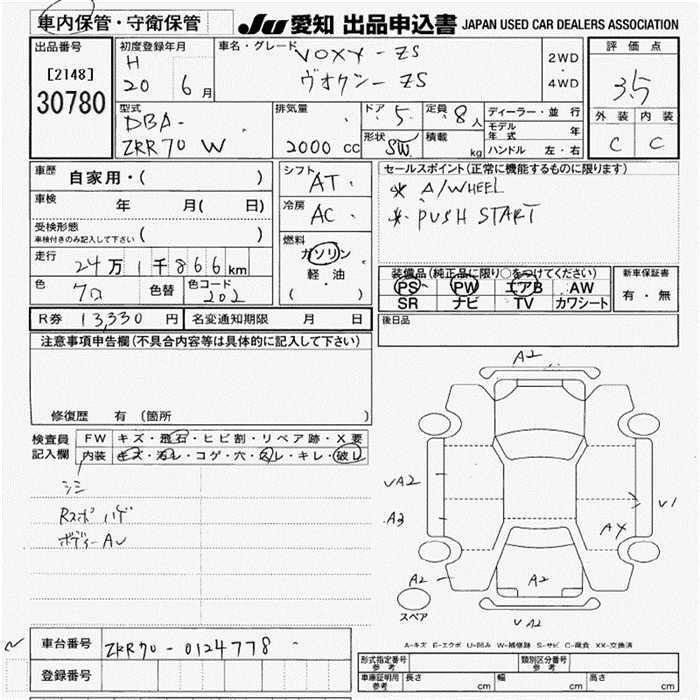 車内保管・守衛保管
JU 愛知 出品申込書 JAPAN USED CAR DEALERS ASSOCIATION
出品番号
[2148]
30780
初度登録年月
H
20 6月
車名・グレード
VOXY - ZS
ヴォクシー ZS
2WD
・
4WD
評価点
3.5
外装 内装
C C
型式
DBA-
ZRR70 W
排気量
2000 cc
ドア 5
定員 8人
形状 SW
積載 kg
ディーラー・並行
モデル年式 年
ハンドル 左・右
車歴
自家用・( )
車検 年 月( 日)
受検形態
車検付きのみ記入して下さい ( )
走行
24万1千866km
色 クロ 色替 色コード 202
シフト AT
冷房 AC
燃料
ガソリン
軽・油
( ・ )
セールスポイント(正常に機能するものに限ります)
* A/WHEEL
* PUSH START
装備品(純正品に限り○をつけてください)
PS PW エアB AW
SR ナビ TV カワシート
新車保証書
有・無
R券 13,330円 名変通知期限 月 日
後日品
注意事項申告欄(不具合内容等は具体的に記入して下さい)
修復歴 有 (箇所 )
検査員記入欄
FW キズ・飛石・ヒビ割・リペア跡・X要
内装 キズ・汚レ・コゲ・穴・スレ・キレ・破レ
シミ
Rスポ ハゲ
ボディーAU
A2
UA2
A3
U1
AY
A2
A2
UA2
スペア
A-キズ E-エクボ U-凹み W-補修跡 S-サビ C-腐食 XX-交換済
車台番号 ZRR70-0124778
登録番号
形式指定番号 参考
類別区分番号 参考
車庫証明用 参考 長さ cm 幅 cm 高さ cm